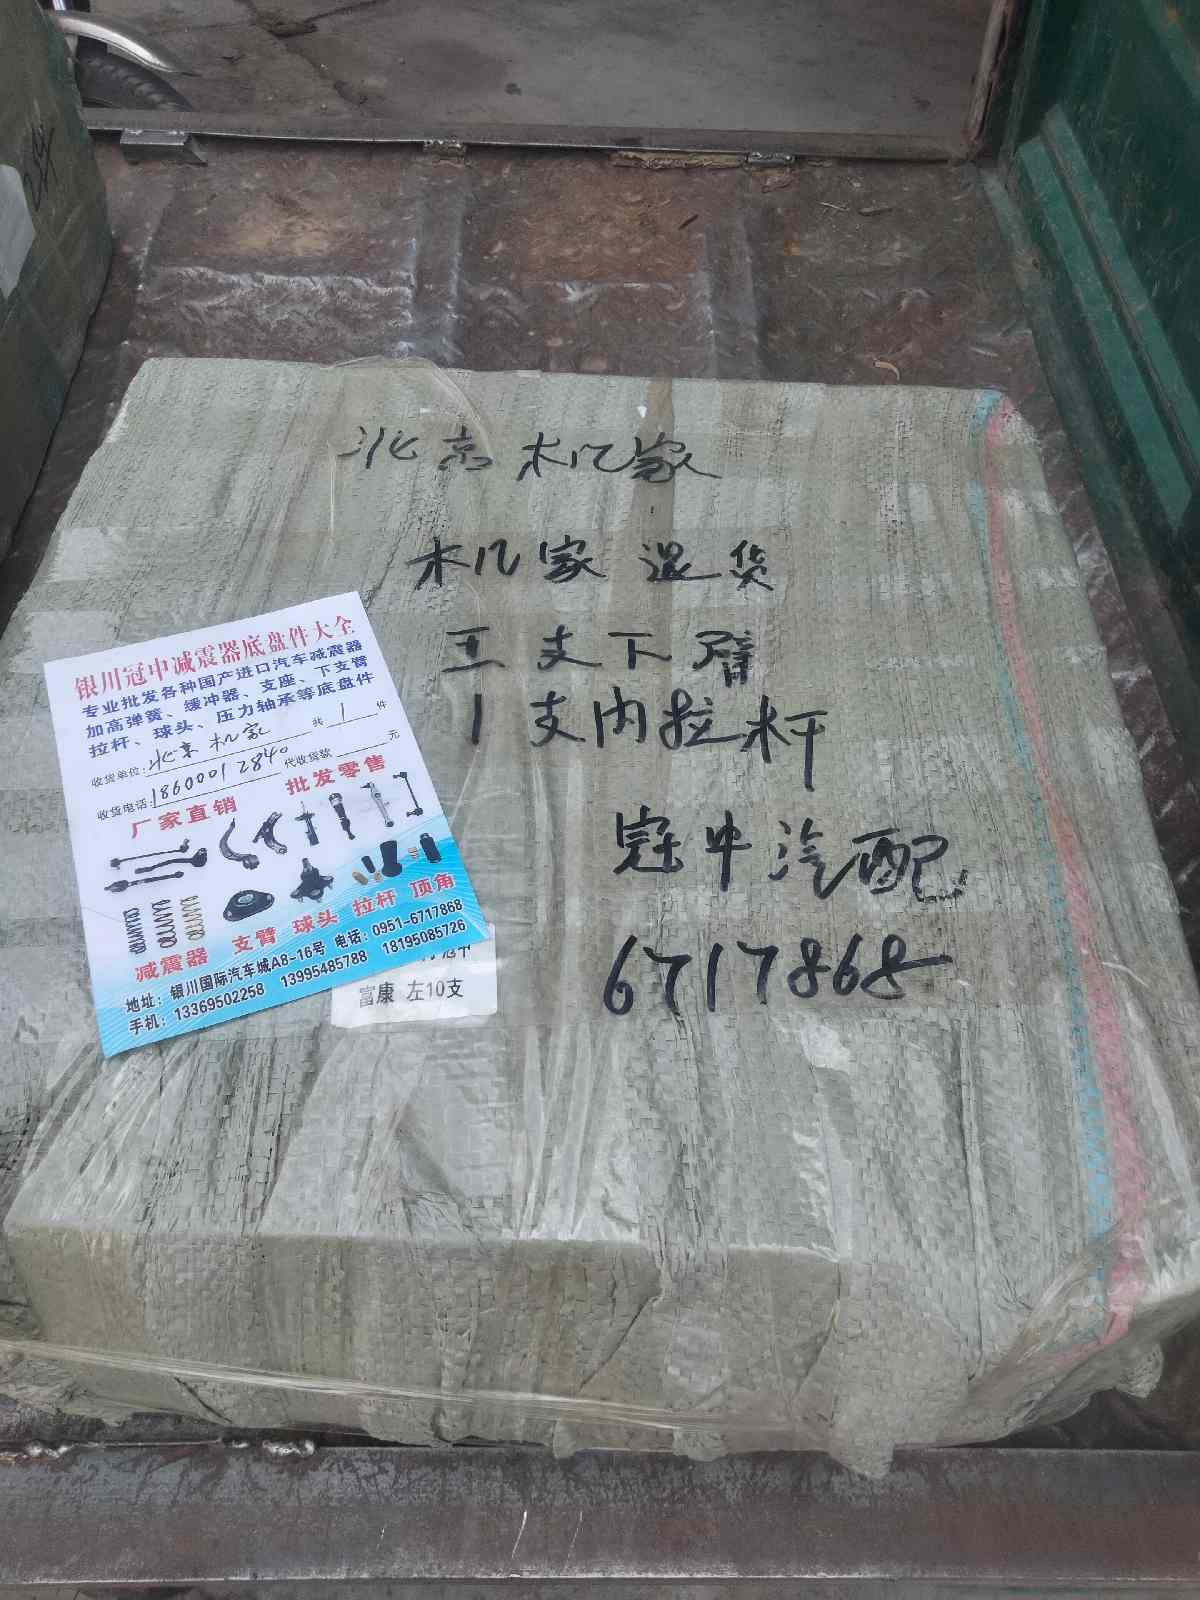 北京 机家
机家 退货
王支下臂
1支内拉杆
冠中汽配
6717868
银川冠中减震器底盘件大全
专业批发各种国产进口汽车减震器
加高弹簧、缓冲器、支座、下支臂
拉杆、球头、压力轴承等底盘件
收货单位: 北京机家 共 1 件
收货电话: 18600012840 代收货款 元
厂家直销 批发零售
减震器 支臂 球头 拉杆 顶角
地址：银川国际汽车城A8-16号 电话：0951-6717868
手机：13369502258 13995485788 18195085726
富康 左10支